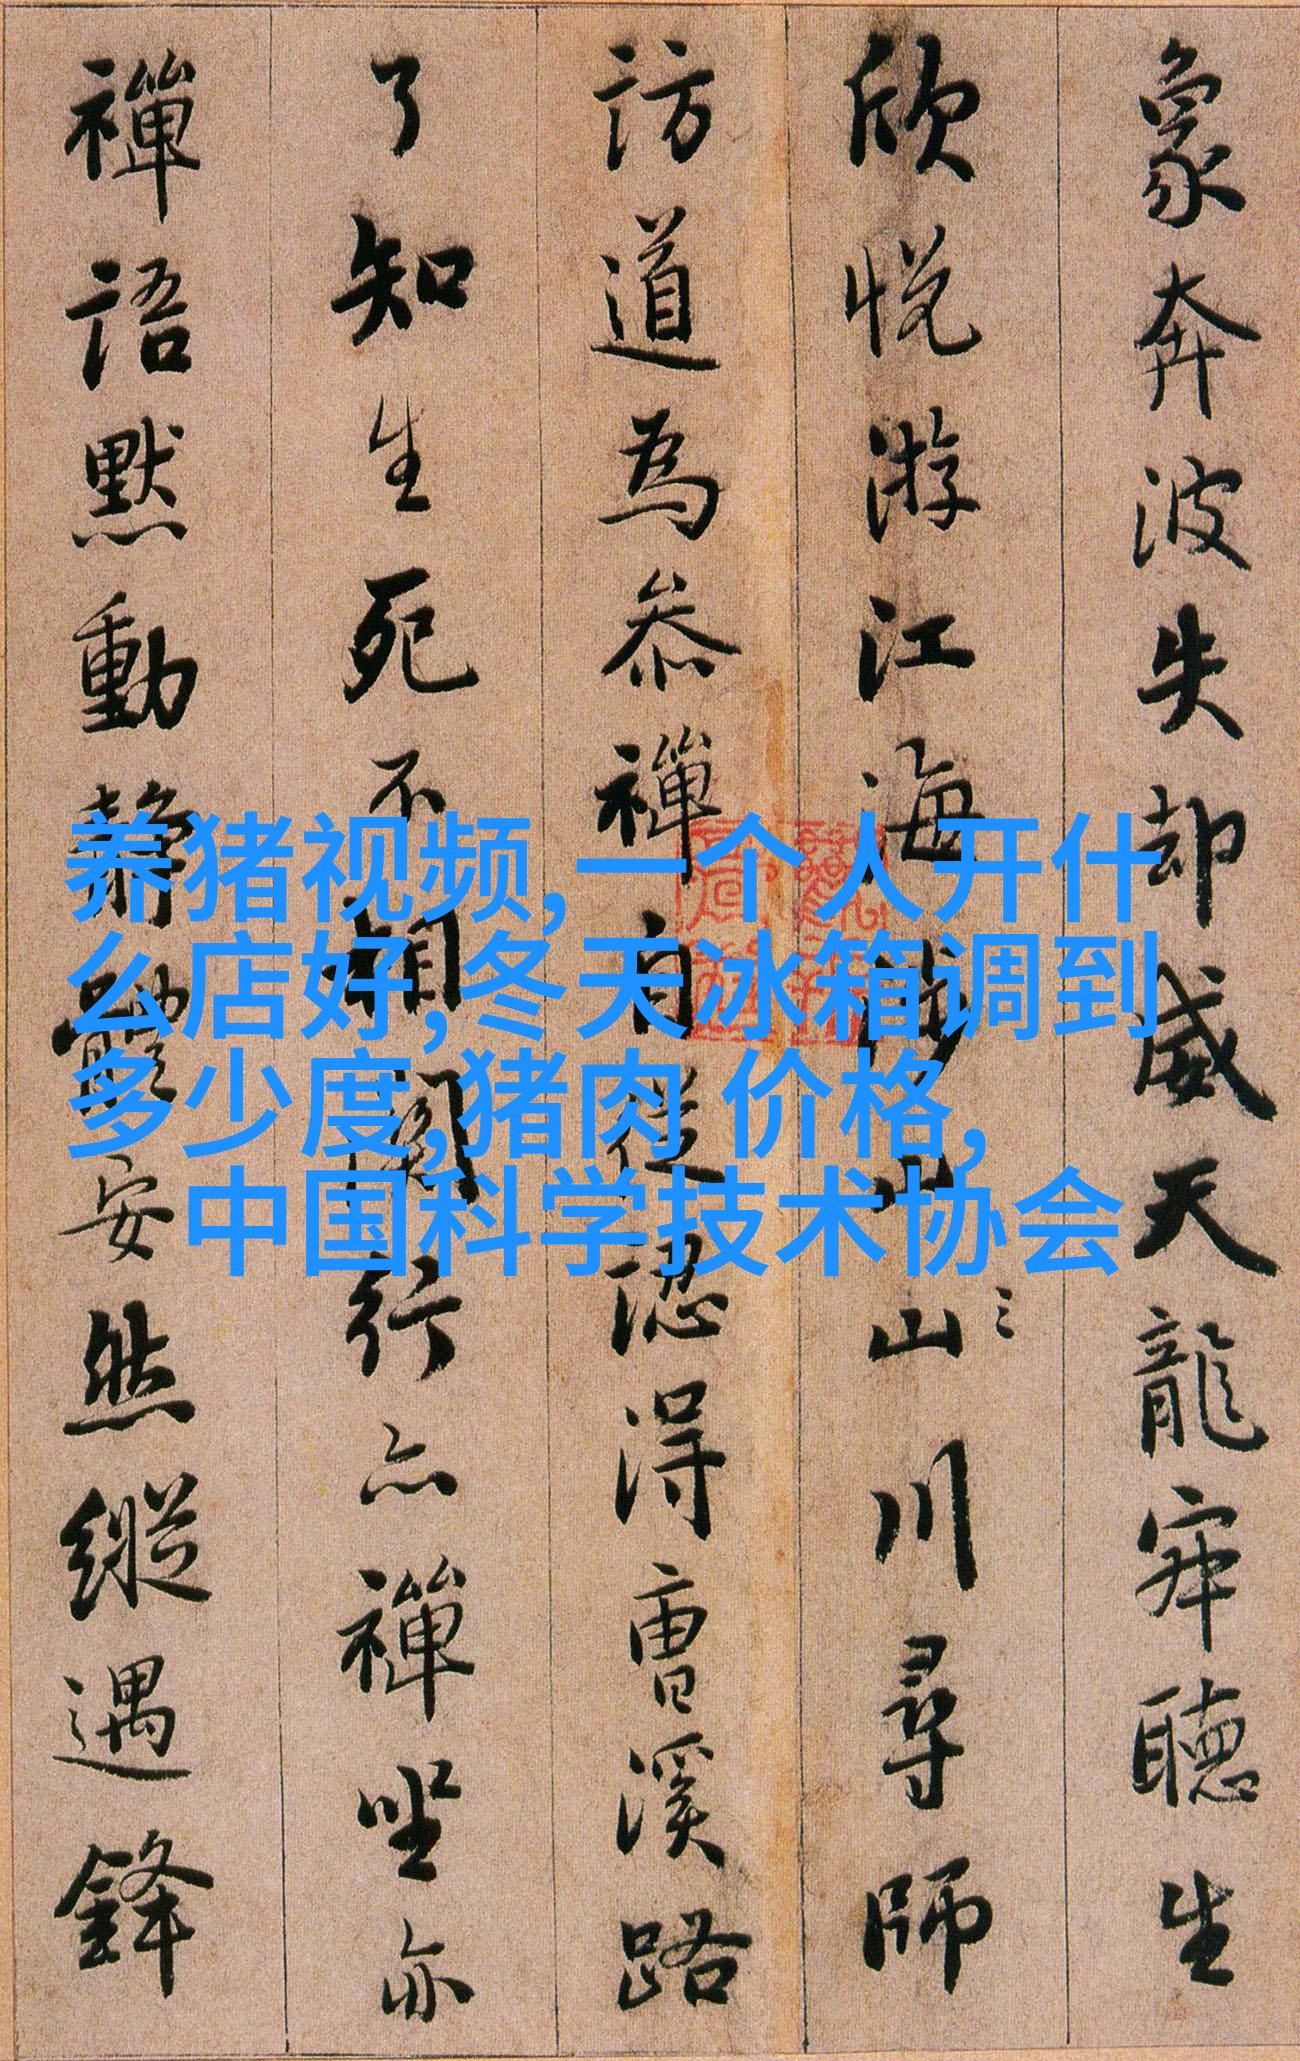 象奔波失却威天龍寂聽生
欣悦游江海涉山山川尋師
訪道為叅禪自從認得曹溪路
了知生死不相關行亦禪坐亦
禪語默動靜體安然縱遇鋒
养猪视频,一个人开什
么店好,冬天冰箱调到
多少度,猪肉 价格,
中国科学技术协会